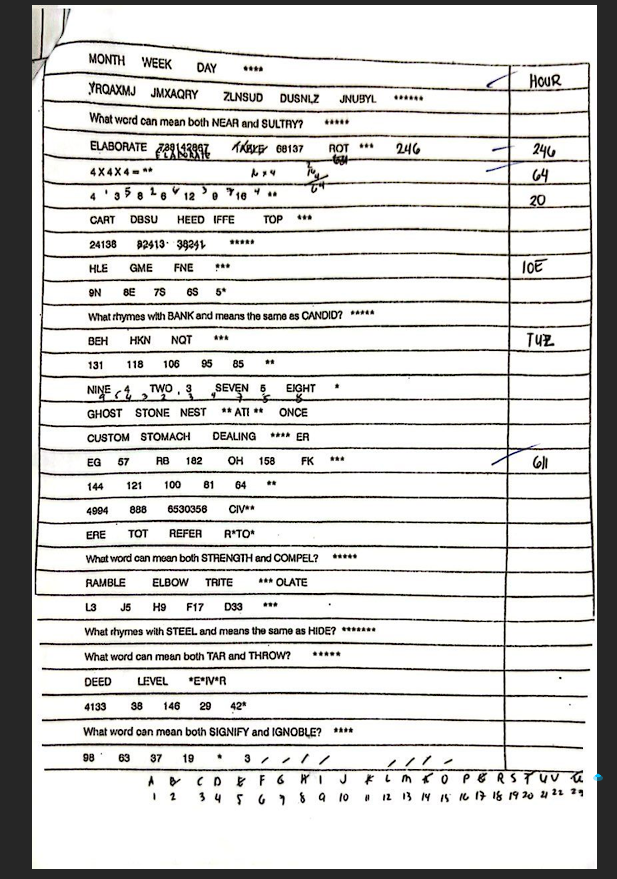 MONTH WEEK DAY **** HOUR
YRQAXMJ JMXAQRY ZLNSUD DUSNLZ JNUBYL ******
What word can mean both NEAR and SULTRY? *****
ELABORATE 738142867 TABLE 68137 ROT *** 246 246
ELABORATE
4 X 4 X 4 = ** 64
64
4 3 8 6 12 9 16 ** 20
CART DBSU HEED IFFE TOP ***
24138 82413 38241 *****
HLE GME FNE *** IOE
9N 8E 7S 6S 5*
What rhymes with BANK and means the same as CANDID? *****
BEH HKN NQT *** TUZ
131 118 106 95 85 **
NINE 4 TWO 3 SEVEN 5 EIGHT *
GHOST STONE NEST **ATI** ONCE
CUSTOM STOMACH DEALING ****ER
EG 57 RB 182 OH 158 FK *** 611
144 121 100 81 64 **
4994 888 6530356 CIV**
ERE TOT REFER R*TO*
What word can mean both STRENGTH and COMPEL? *****
RAMBLE ELBOW TRITE ***OLATE
L3 J5 H9 F17 D33 ***
What rhymes with STEEL and means the same as HIDE? *******
What word can mean both TAR and THROW? *****
DEED LEVEL *E*IV*R
4133 38 146 29 42*
What word can mean both SIGNIFY and IGNOBLE? ****
98 63 37 19 * 3
A B C D E F G H I J K L M N O P Q R S T U V
1 2 3 4 5 6 7 8 9 10 11 12 13 14 15 16 17 18 19 20 21 22